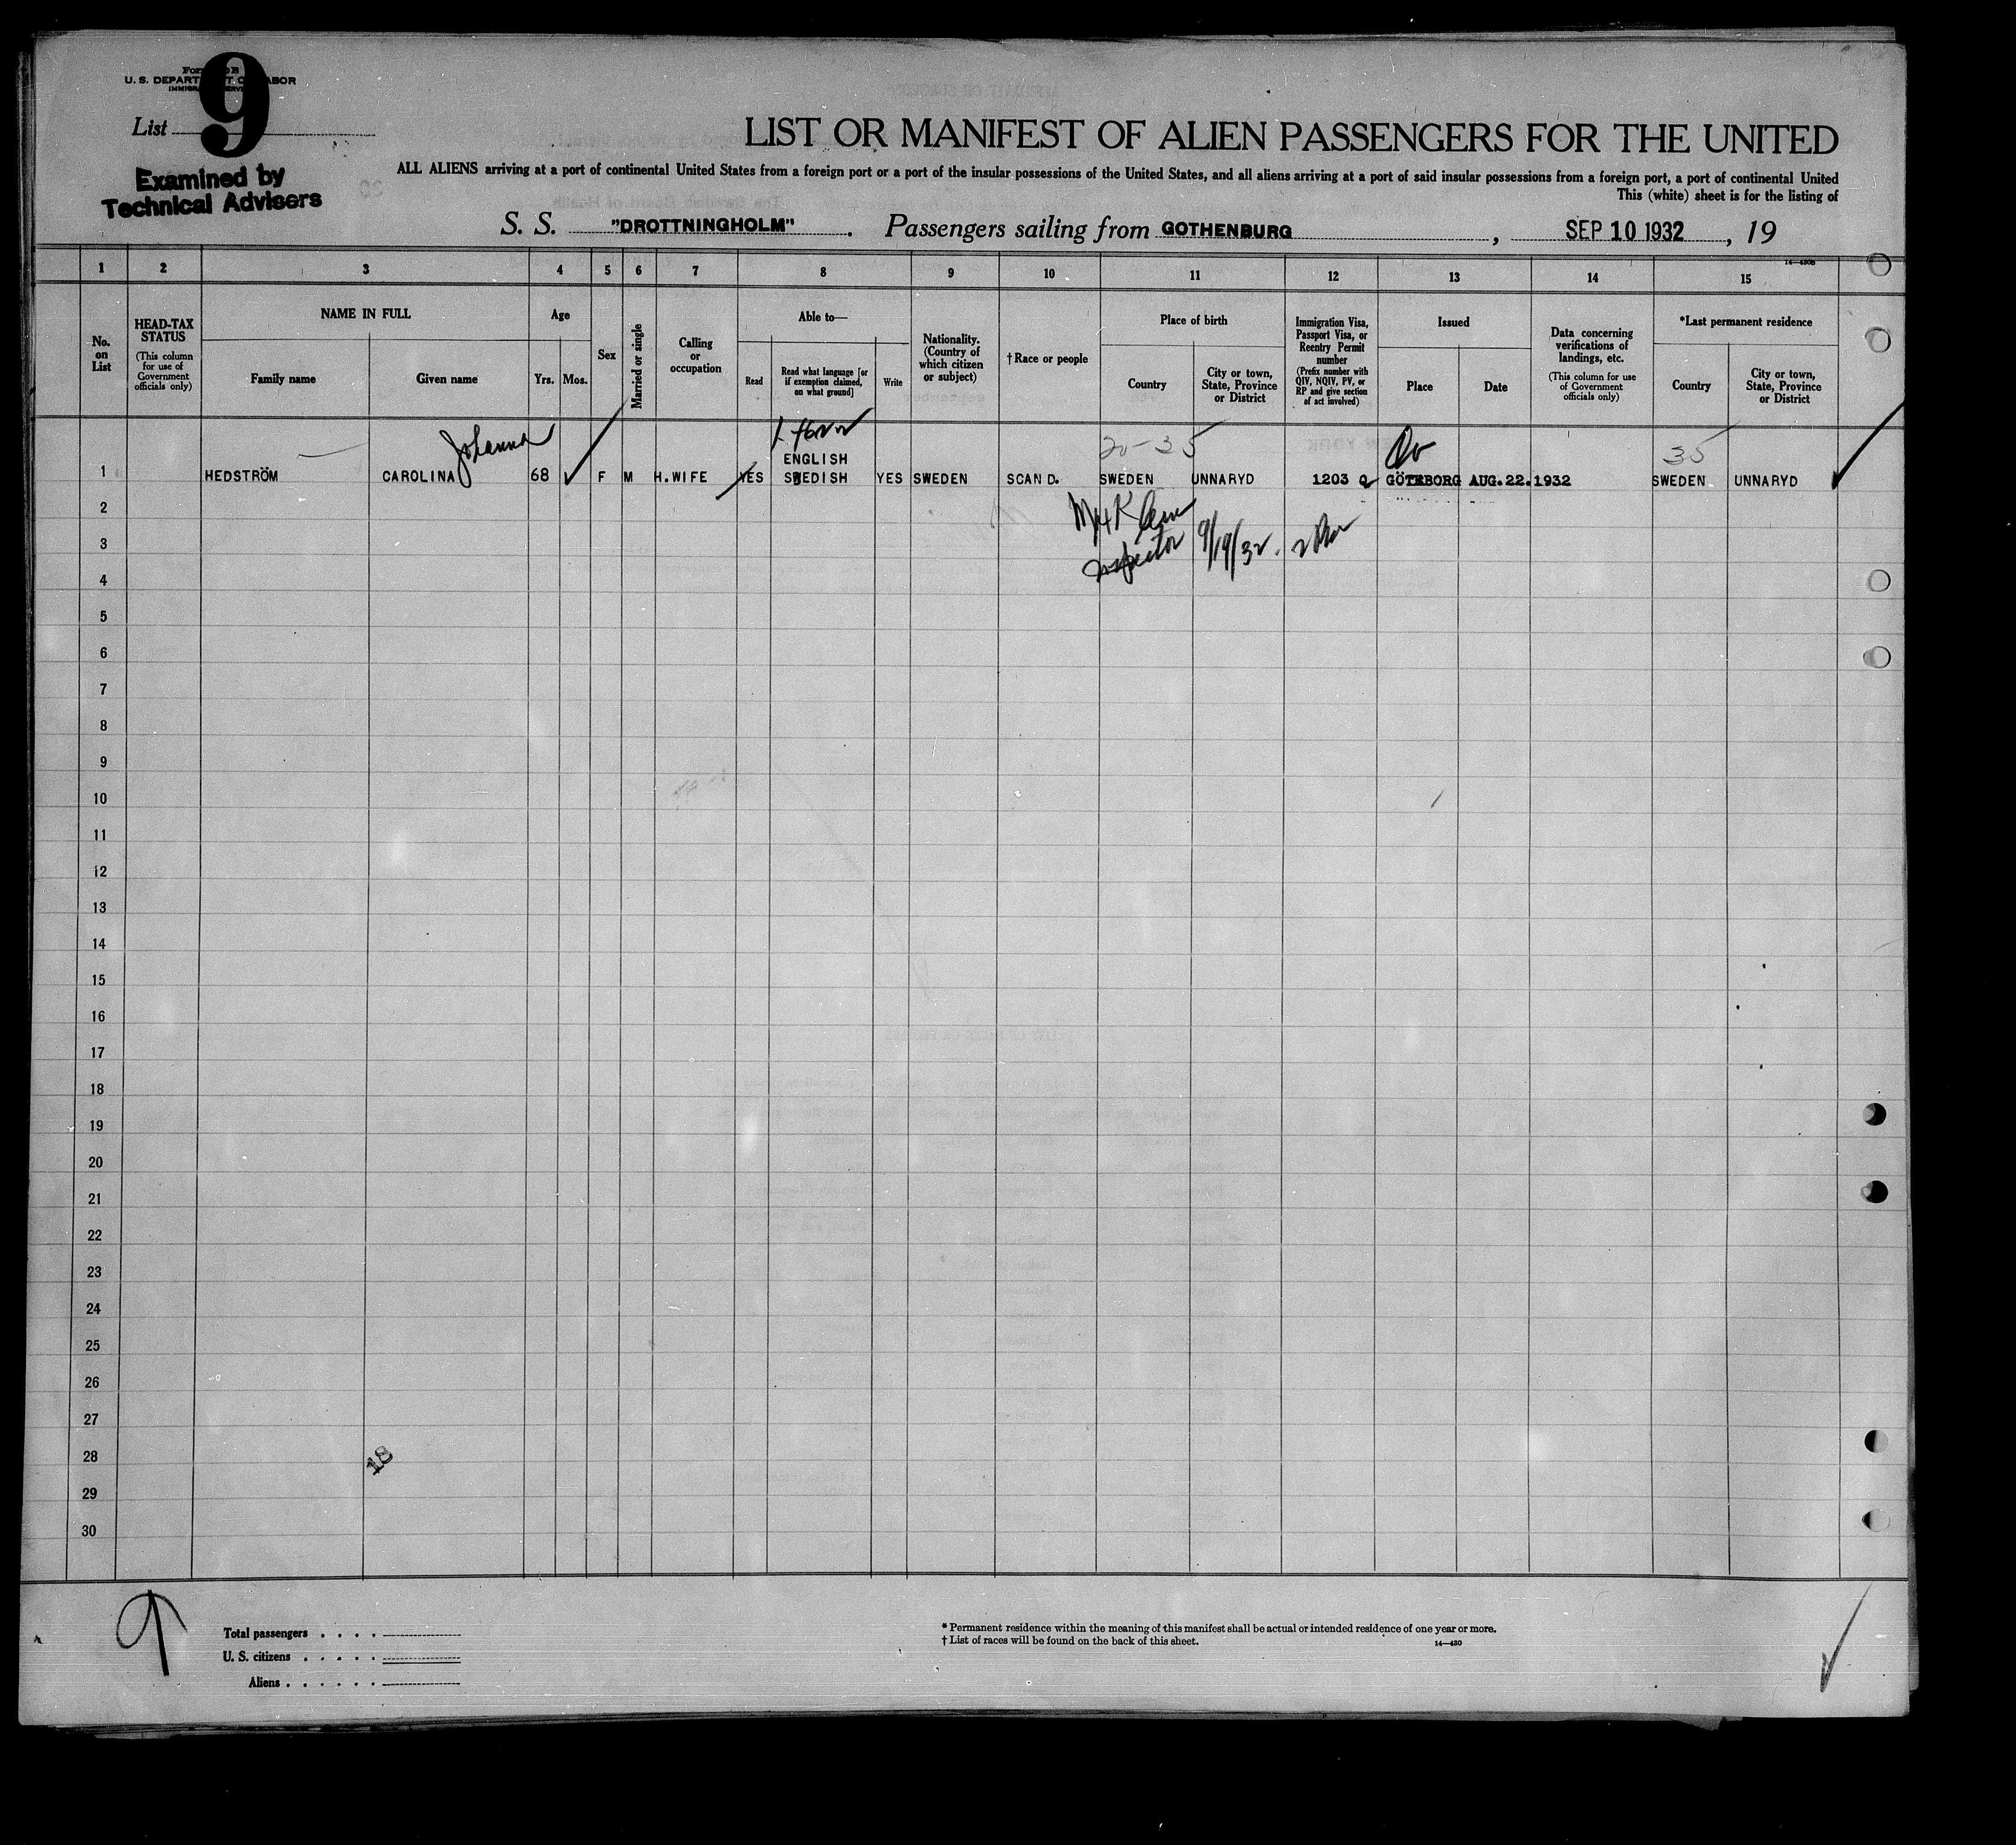 Form 630B
U. S. DEPARTMENT OF LABOR
IMMIGRATION SERVICE
List 9
Examined by
Technical Advisers
LIST OR MANIFEST OF ALIEN PASSENGERS FOR THE UNITED
ALL ALIENS arriving at a port of continental United States from a foreign port or a port of the insular possessions of the United States, and all aliens arriving at a port of said insular possessions from a foreign port, a port of continental United
This (white) sheet is for the listing of
S. S. "DROTTNINGHOLM". Passengers sailing from GOTHENBURG, SEP 10 1932, 19
1 2 3 4 5 6 7 8 9 10 11 12 13 14 15
14—430B
No. on List
HEAD-TAX STATUS
(This column for use of Government officials only)
NAME IN FULL
Family name
Given name
Age
Yrs.
Mos.
Sex
Married or single
Calling or occupation
Able to—
Read
Read what language [or if exemption claimed, on what ground]
Write
Nationality. (Country of which citizen or subject)
†Race or people
Place of birth
Country
City or town, State, Province or District
Immigration Visa, Passport Visa, or Reentry Permit number
(Prefix number with QIV, NQIV, PV, or RP and give section of act involved)
Issued
Place
Date
Data concerning verifications of landings, etc.
(This column for use of Government officials only)
*Last permanent residence
Country
City or town, State, Province or District
Johanna
20-35
35
ENGLISH
1 HEDSTRÖM CAROLINA 68 F M H.WIFE YES SWEDISH YES SWEDEN SCAND. SWEDEN UNNARYD 1203 Q GÖTEBORG AUG.22.1932 SWEDEN UNNARYD
2
3 Inspector 9/19/32.
4
5
6
7
8
9
10
11
12
13
14
15
16
17
18
19
20
21
22
23
24
25
26
27
28 18
29
30
Total passengers . . . .
U. S. citizens . . . . .
Aliens . . . . . .
* Permanent residence within the meaning of this manifest shall be actual or intended residence of one year or more.
† List of races will be found on the back of this sheet.
14—430